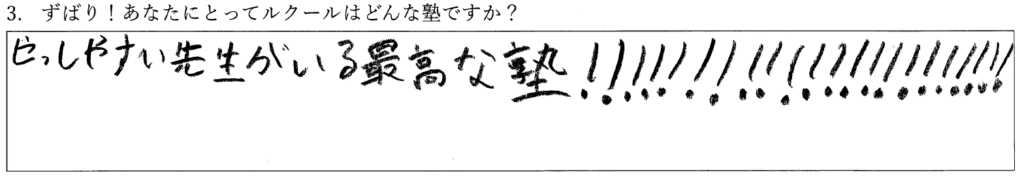 3. ずばり！あなたにとってルクールはどんな塾ですか？
せっしやすい先生がいる最高な塾!!!!!!!!!!!!!!!!!!!!!!!